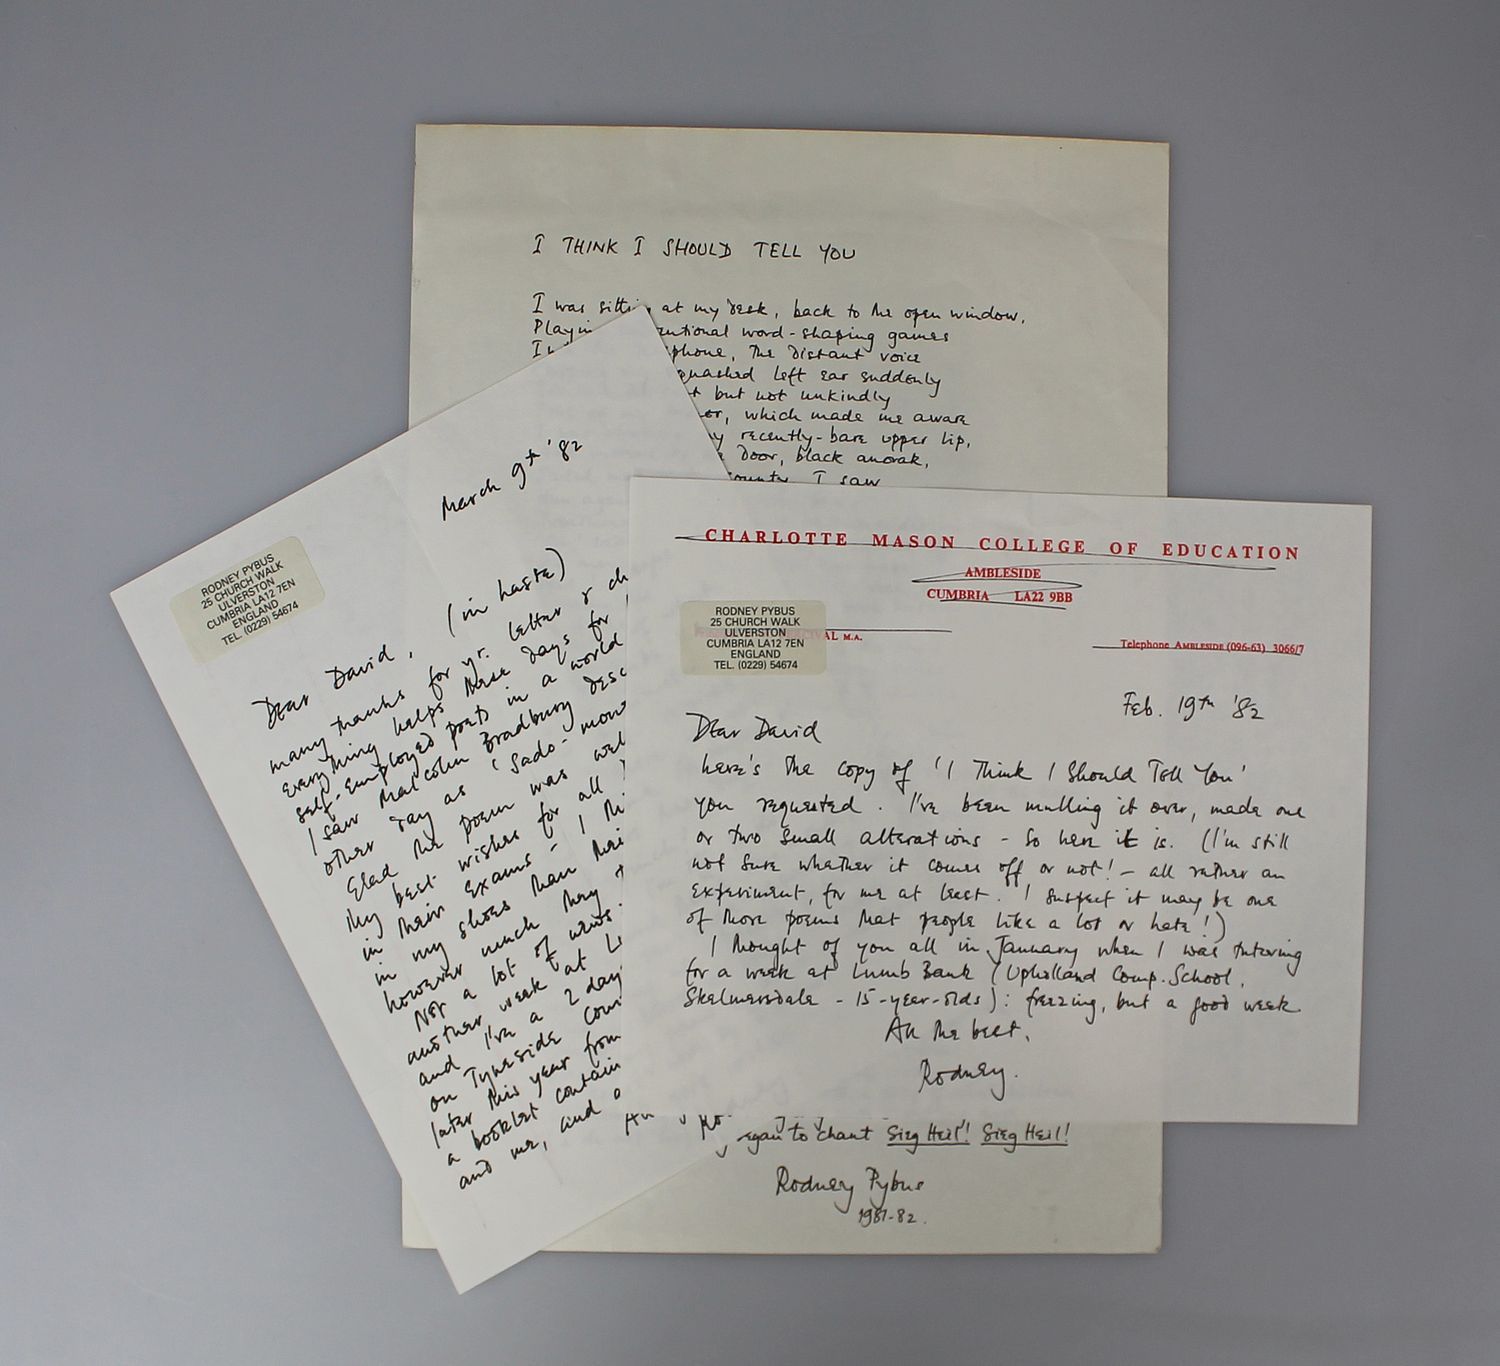 I THINK I SHOULD TELL YOU
I was sitting at my desk, back to the open window,
word-shaping games
phone, the distant voice
left ear suddenly
but not unkindly
, which made me aware
recently-bare upper lip,
door, black anorak,
county, I saw
began to chant Sieg Heil! Sieg Heil!
Rodney Pybus
1981-82.
March 9th '82
RODNEY PYBUS
25 CHURCH WALK
ULVERSTON
CUMBRIA LA12 7EN
ENGLAND
TEL. (0229) 54674
Dear David, (in haste)
many thanks for yr. letter &
everything helps these days for
self-employed poets in a world
I saw Malcolm Bradbury
other day as 'Sado-
Glad the poem was
My best wishes for all
in their exams – I
in my shoes than
however much they
Not a lot of news.
another week at
and I've a 2 day
on Tyneside
later this year from
a booklet
and me, and
CHARLOTTE MASON COLLEGE OF EDUCATION
AMBLESIDE
CUMBRIA LA22 9BB
RODNEY PYBUS
25 CHURCH WALK
ULVERSTON
CUMBRIA LA12 7EN
ENGLAND
TEL. (0229) 54674
M.A.
Telephone AMBLESIDE (096-63) 3066/7
Feb. 19th '82
Dear David
here's the copy of 'I Think I Should Tell You'
you requested. I've been mulling it over, made one
or two small alterations – so here it is. (I'm still
not sure whether it comes off or not! – all rather an
experiment, for me at least. I suspect it may be one
of those poems that people like a lot or hate!)
I thought of you all in January when I was tutoring
for a week at Lumb Bank (Upholland Comp. School,
Skelmersdale – 15-year-olds): freezing, but a good week
All the best,
Rodney.